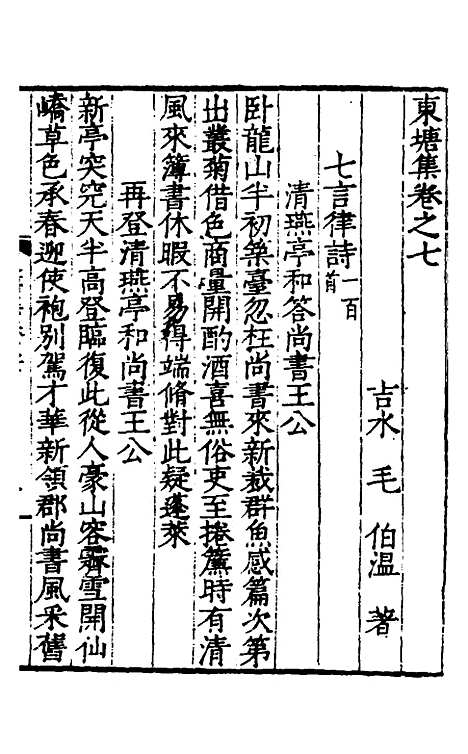 東塘集卷之七
吉水毛伯溫著
七言律詩一百首
清燕亭和答尚書王公
臥龍山半初築臺忽枉尚書來新裁群魚感篇次第
出叢菊借色商量開酌酒喜無俗吏至捲簾時有清
風來簿書休暇不易得端脩對此疑蓬萊
再登清燕亭和尚書王公
新亭突兀天半高登臨復此從人豪山容霽雪開仙
嶠草色承春迎使袍別駕才華新領郡尚書風采舊